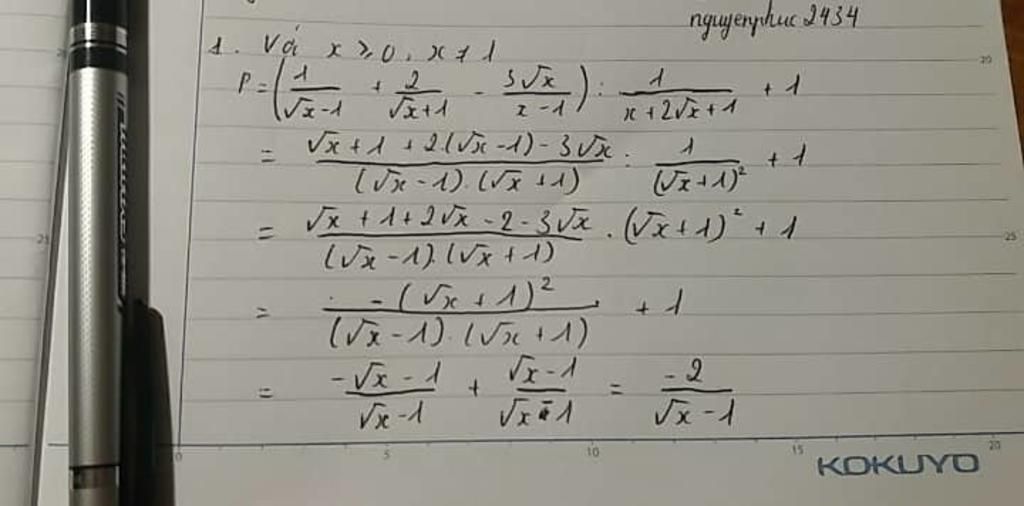 nguyenphuc2434
1. Với x ≥ 0, x ≠ 1
P = (1/(√x-1) + 2/(√x+1) - 3√x/(x-1)) : 1/(x+2√x+1) + 1
= (√x+1+2(√x-1)-3√x)/((√x-1).(√x+1)) : 1/(√x+1)² + 1
= (√x+1+2√x-2-3√x)/((√x-1).(√x+1)) . (√x+1)² + 1
= -(√x+1)²/((√x-1).(√x+1)) + 1
= (-√x-1)/(√x-1) + (√x-1)/(√x-1) = -2/(√x-1)
0 5 10 15 20
KOKUYO
20
25